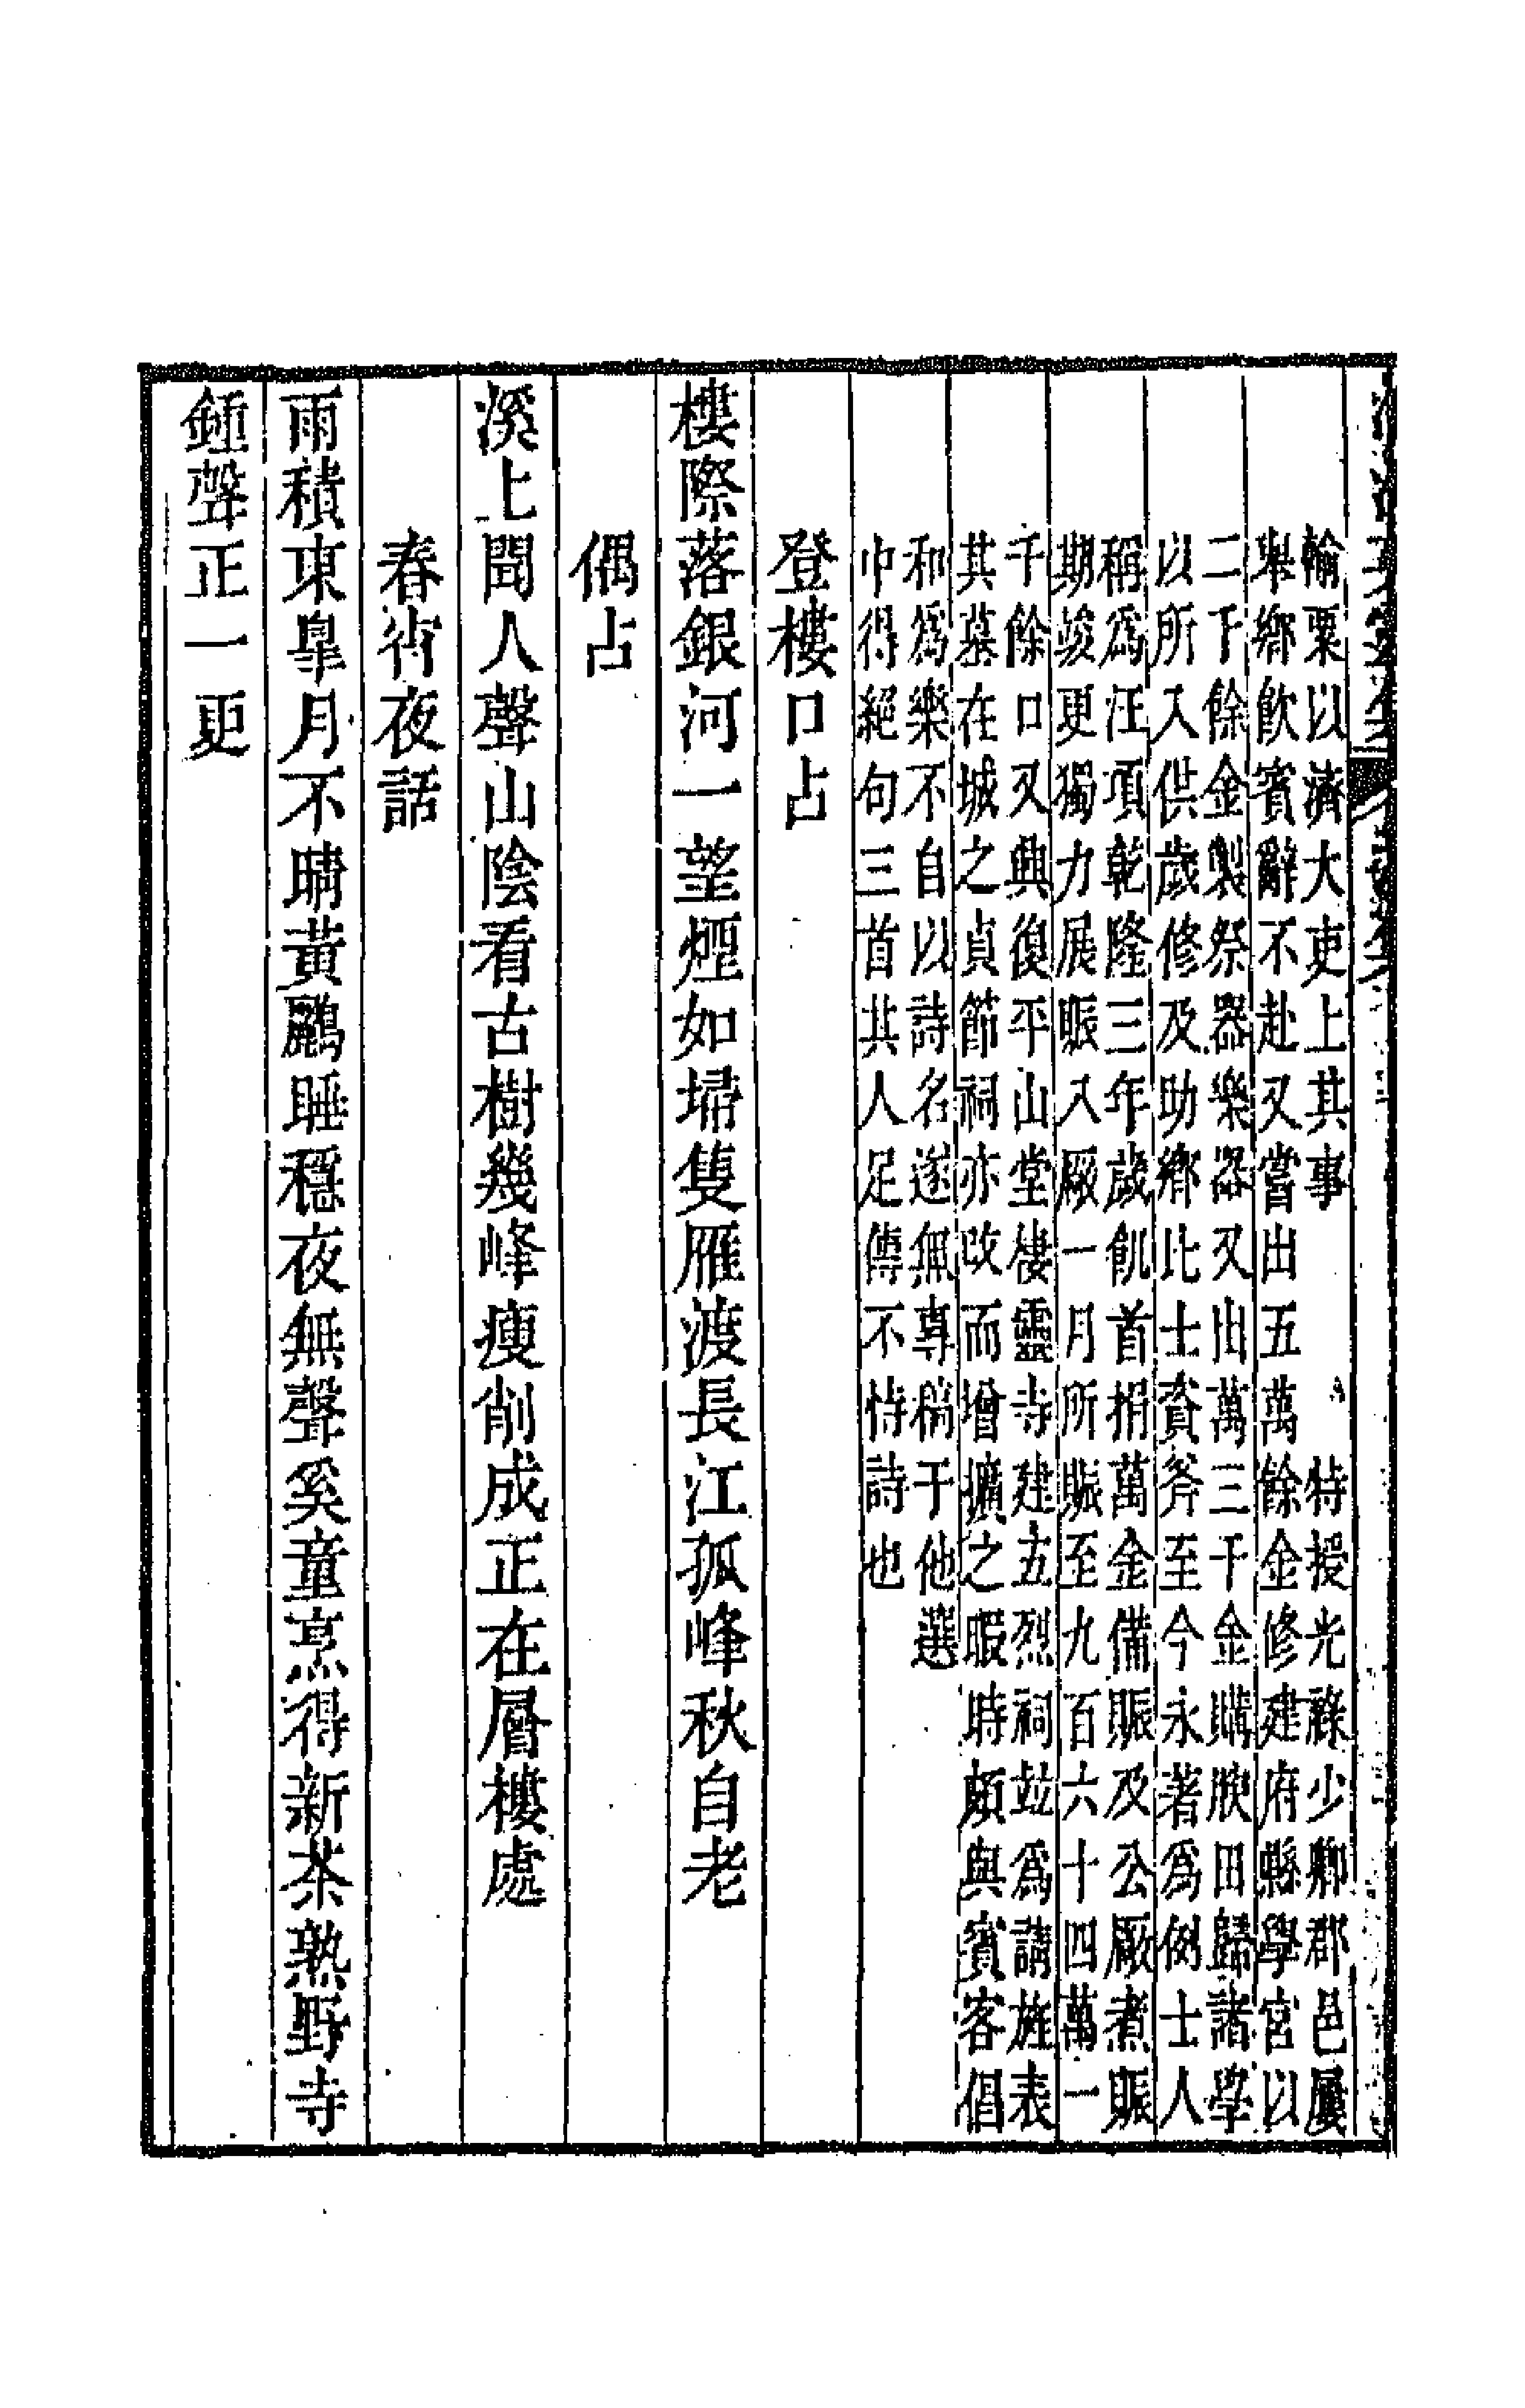 輸粟以濟大吏上其事　特授光祿少卿郡邑屢
舉鄉飲賓辭不赴又嘗出五萬餘金修建府縣學宮以
二千餘金製祭器樂器又出萬三千金購腴田歸諸學
以所入供歲修及助鄉比士資斧至今永著爲例士人
稱爲汪項乾隆三年歲飢首捐萬金備賑及公廠煮賑
期竣更獨力展賑入廠一月所賑至九百六十四萬一
千餘口又興復平山堂棲靈寺建五烈祠竝爲請旌表
其墓在城之貞節祠亦改而增擴之暇時頗與賓客倡
和爲樂不自以詩名遂無專稿于他選
中得絕句三首其人足傳不恃詩也
登樓口占
樓際落銀河一望煙如埽隻雁渡長江孤峰秋自老
偶占
溪上聞人聲山陰看古樹幾峰瘦削成正在層樓處
春宵夜話
雨積東皐月不晴黃鸝睡穩夜無聲奚童烹得新茶熟野寺
鍾聲正一更